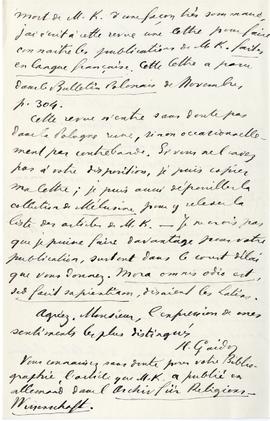 mort de M. K. d'une façon très sommaire,
j'ai écrit à cette revue une lettre pour faire
connaître les publications de M. K. faites
en langue française. Cette lettre a paru
dans le Bulletin Polonais de Novembre,
p. 304.
Cette revue n'entre sans doute pas
dans la Pologne russe, sinon occasionnelle
ment par contrebande. Si vous ne l'avez
pas à votre disposition, je puis copier
ma lettre ; je puis aussi dépouiller la
collection de Mélusine, pour y relever la
liste des articles de M. K. — Je ne crois pas
que je puisse faire davantage pour votre
publication, surtout dans le court délai
que vous donnez. Mora omnis odio est,
sed facit sapientiam, disaient les Latins.
Agréez, Monsieur, l'expression de mes
sentiments les plus distingués
H. Gaidoz
Vous connaissez sans doute, pour votre Biblio-
graphie, l'article que M. K. a publié en
allemand dans l'Archiv für Religions-
Wissenschaft.